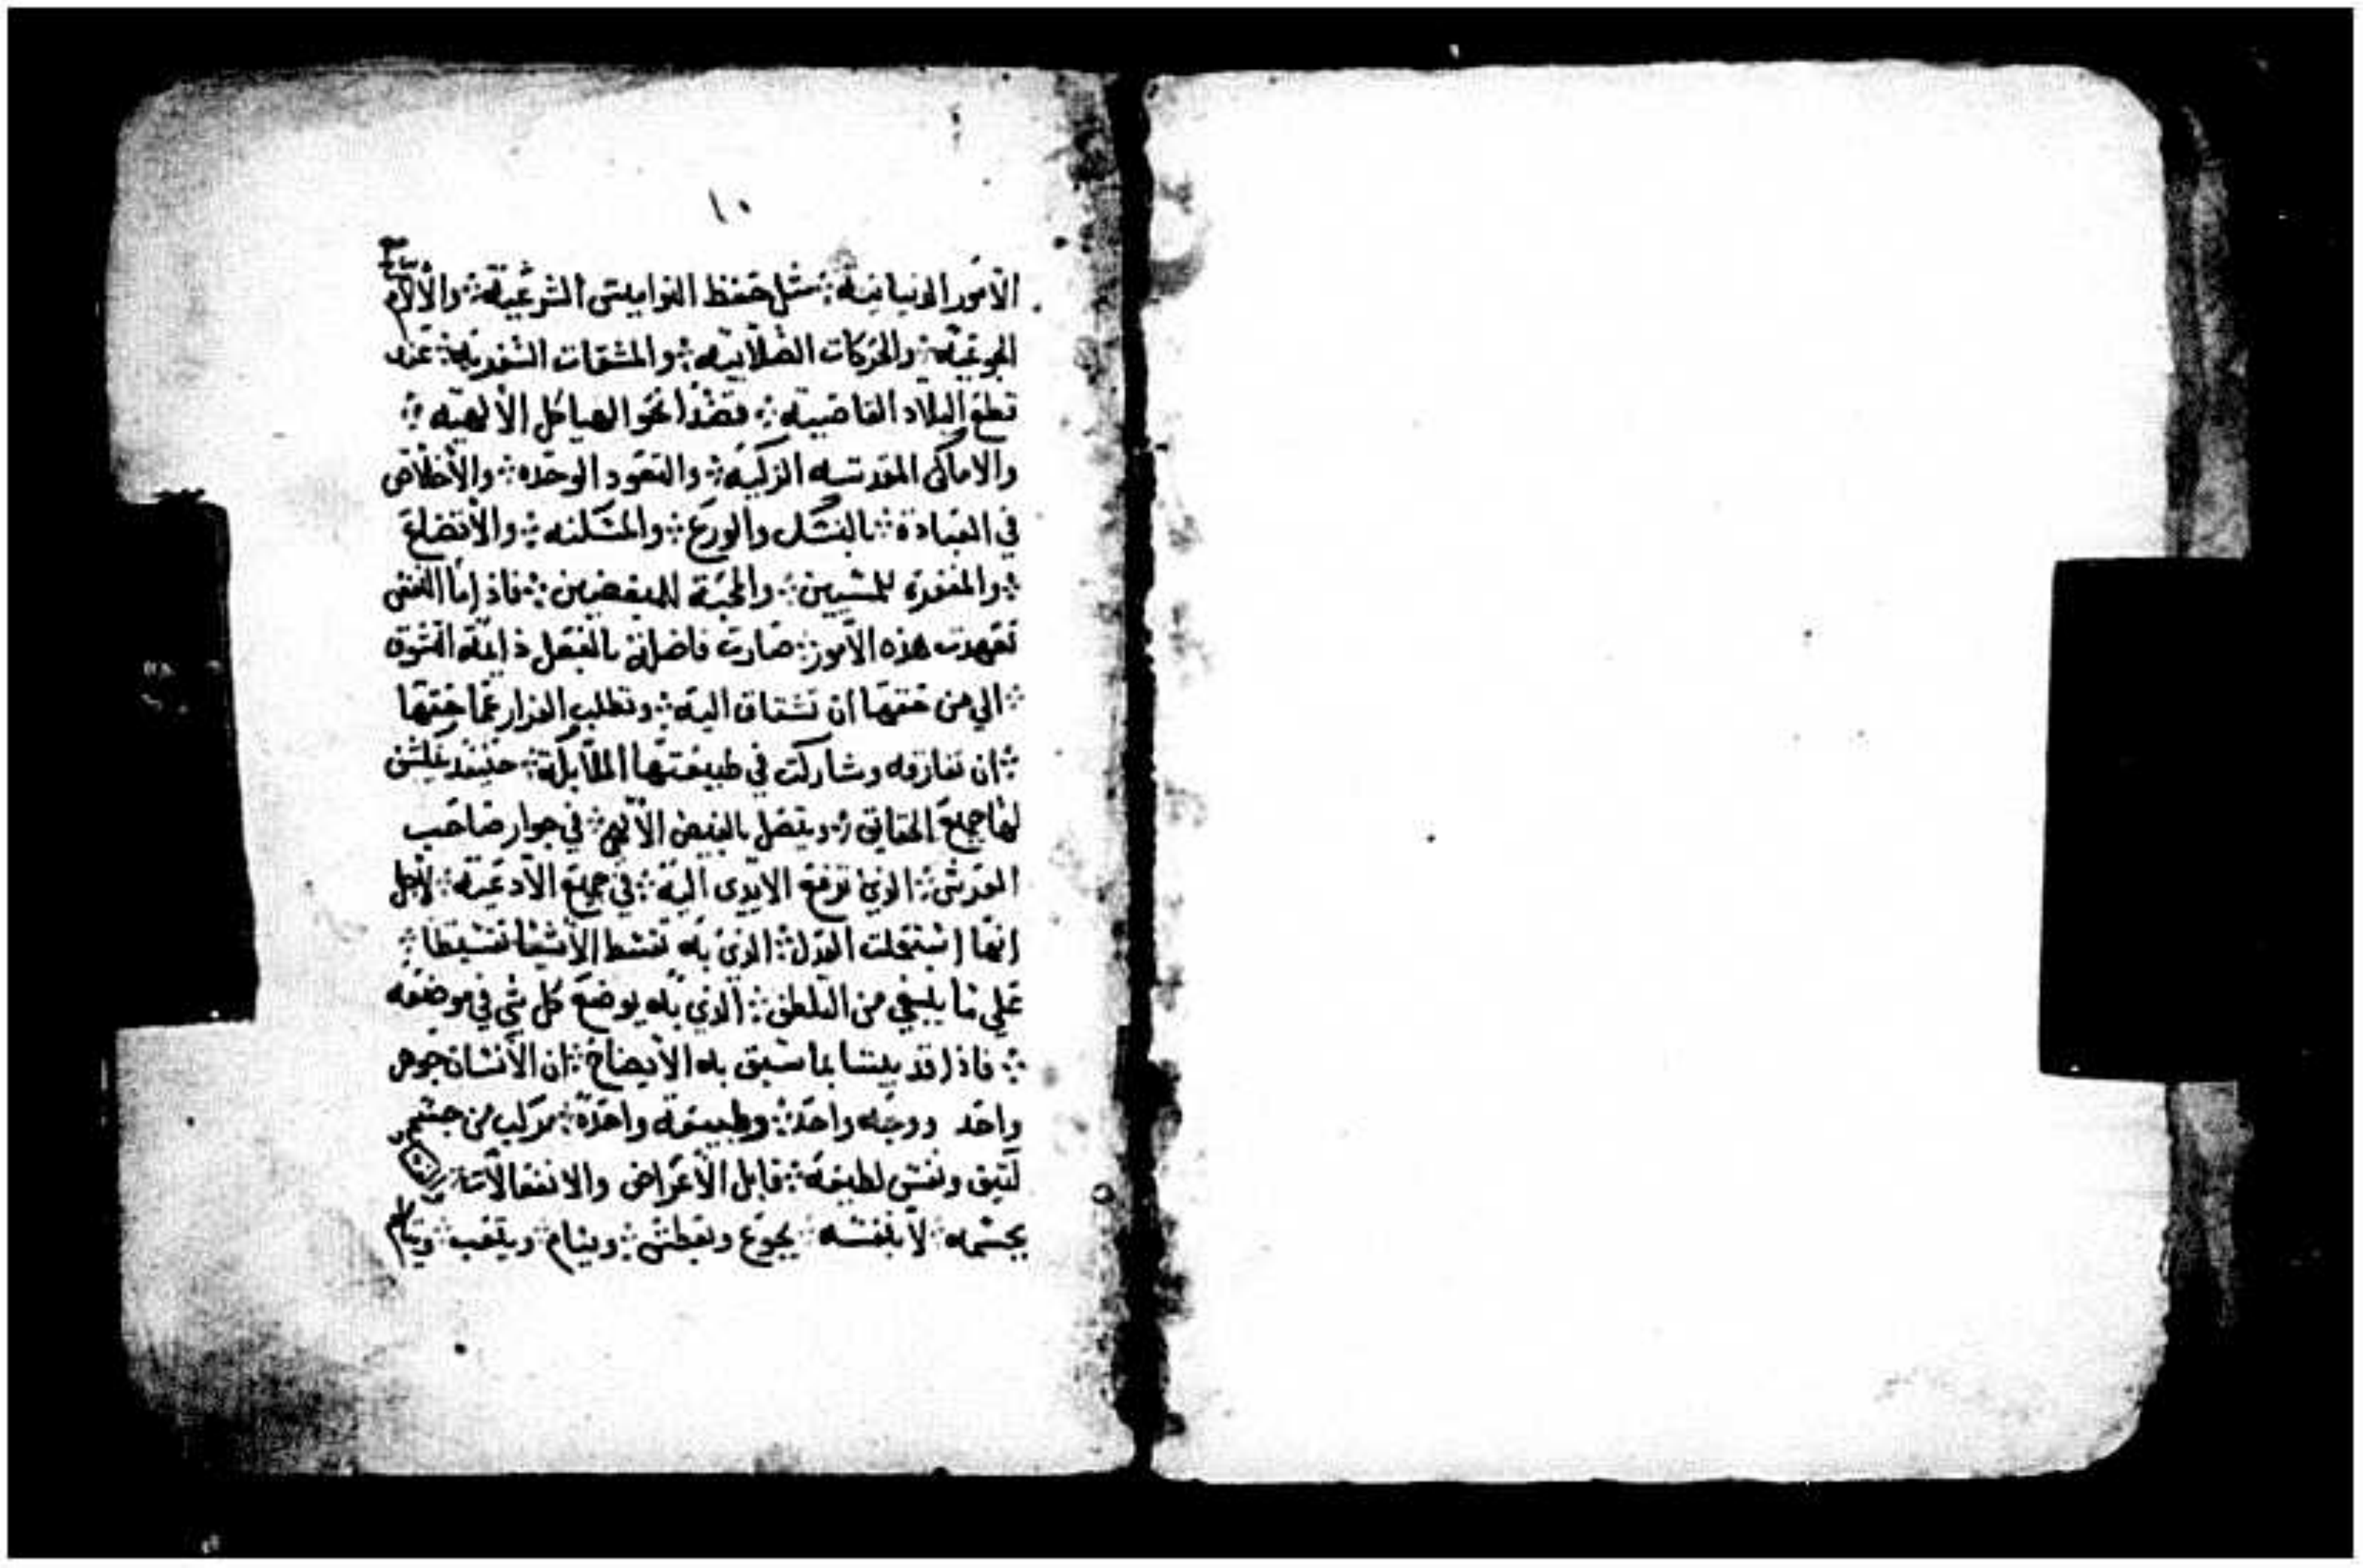 ١٠
الامور الدنيانية ؞ مثل حفظ النواميس الشرعية ؞ والالام
الجوعية ؞ والحركات الصلاتيه ؞ والمشقات السفريه ؞ عند
قطع البلاد القاصيه ؞ قصداً نحو الهياكل الالهيه ؞
والاماكن المقدسه الزكيه ؞ والقعود الوحده ؞ والاخلاص
في العبادة ؞ بالنسك والورع ؞ والمسكنه ؞ والاتضاع
؞ والمغفرة للمسيين ؞ والمحبة للمبغضين ؞ فاذا ما النفس
تعهدت هذه الامور ؞ صارت فاضلة بالفعل ذ القوة
؞ الي من حقها ان تشتاق اليه ؞ وتطلب الفرار عما حقها
؞ ان تفارقه وشاركت في طبيعتها الملايكة ؞ حينيذ
لها جميع الحقايق ؞ ويتصل بالفيض الالهي ؞ في جوار صاحب
العرش ؞ الذي ترفع الايدى اليه ؞ في جميع الادعية ؞ لاجل
انها استعملت العدل ؞ الذي به تقسط الاشيا تقسيطا ؞
علي ما ينبغي من ؞ الذي به يوضع كل شي في موضعه
؞ فاذا قد بينا بما سبق به الايضاح ؞ ان الانسان جوهر
واحد ووجه واحد ؞ وطبيعة واحدة ؞ مركب من جسم
كتيف ونفس لطيفه ؞ قابل الاعراض والانفعالات
بجسمه ؞ لا بنفسه ؞ يجوع ويعطش ؞ وينام ؞ ويتعب ؞